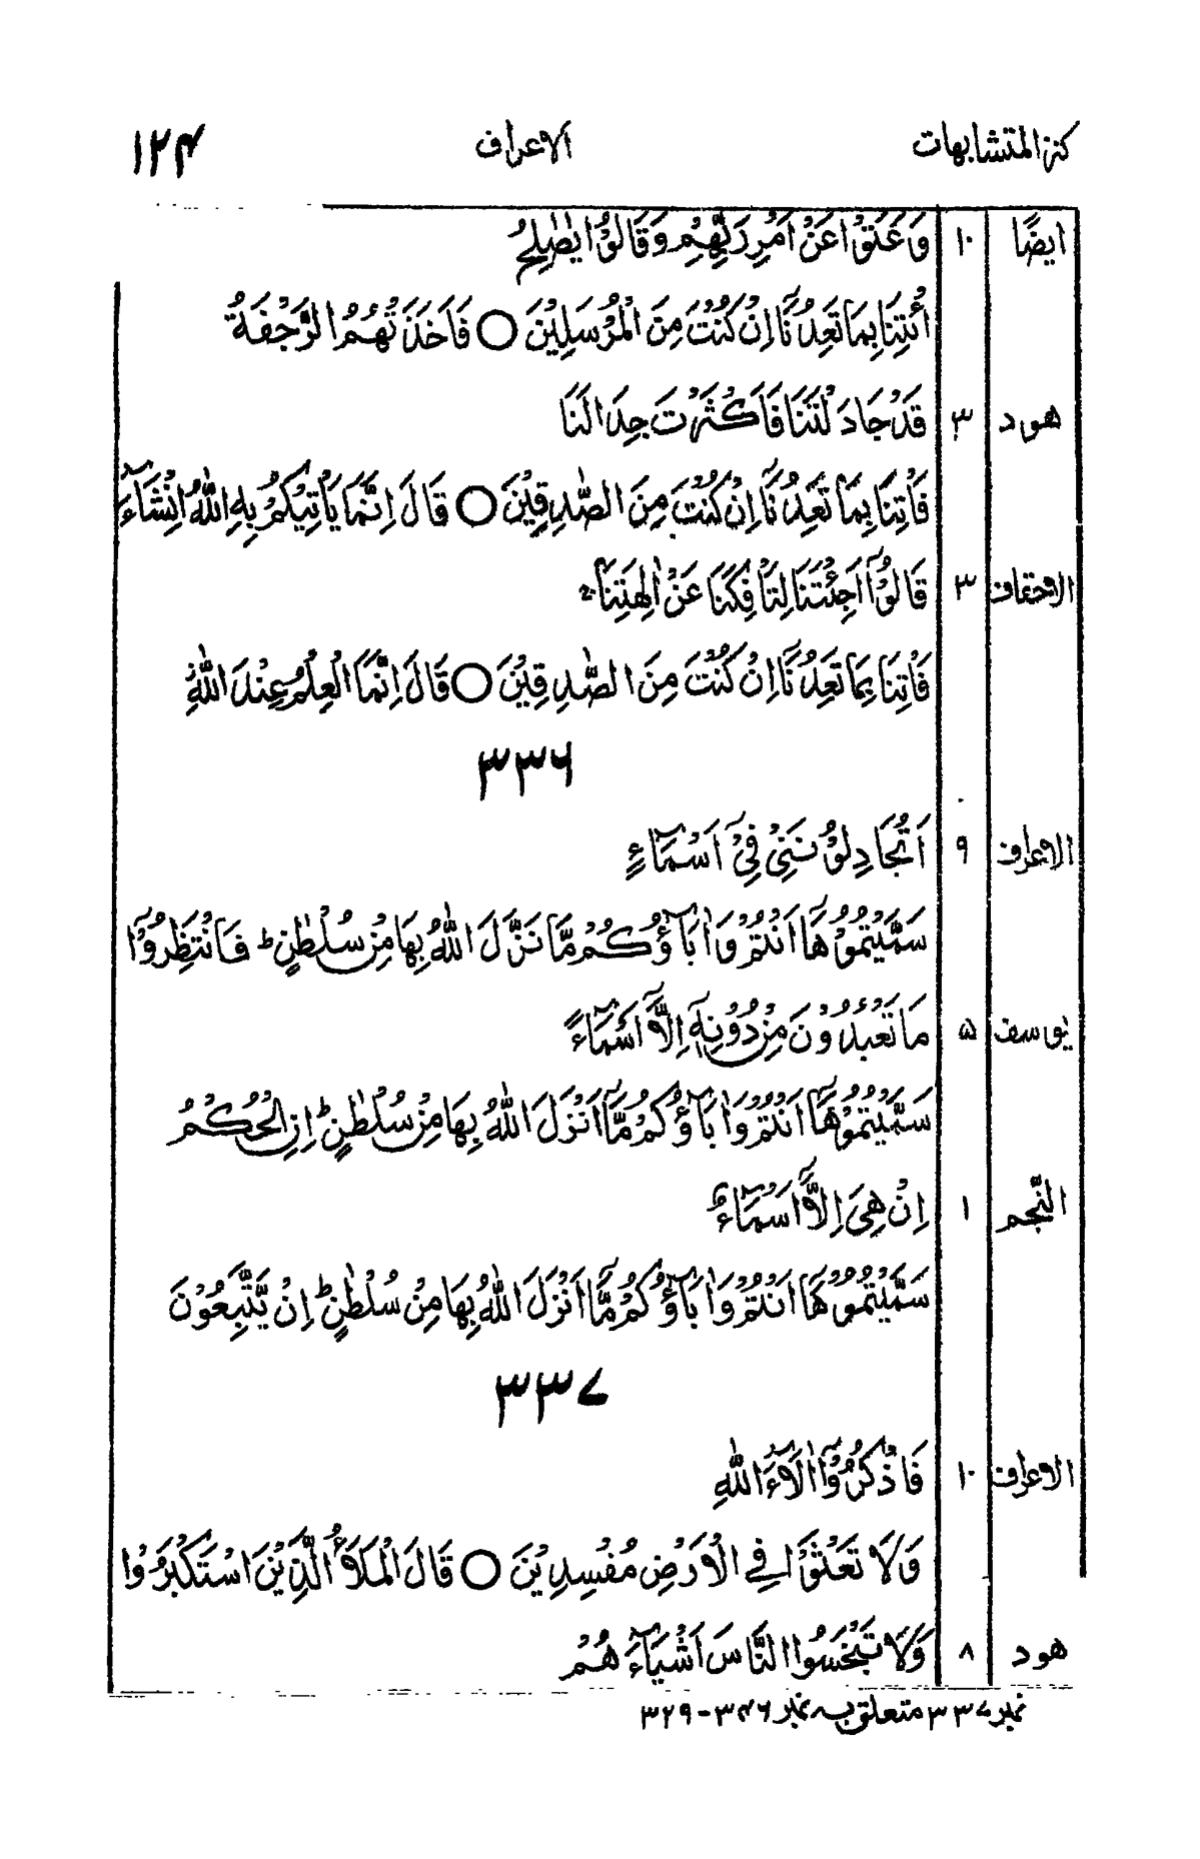 کنز المتشابهات الاعراف ۱۲۴
ایضًا ۱۰ وَعَتَوْا عَنْ اَمْرِ رَبِّهِمْ وَقَالُوْا یٰصٰلِحُ
ائْتِنَا بِمَا تَعِدُنَآ اِنْ كُنْتَ مِنَ الْمُرْسَلِیْنَ ○ فَاَخَذَتْهُمُ الرَّجْفَةُ
هود ۳ قَدْ جَادَلْتَنَا فَاَكْثَرْتَ جِدَالَنَا
فَاْتِنَا بِمَا تَعِدُنَآ اِنْ كُنْتَ مِنَ الصّٰدِقِیْنَ ○ قَالَ اِنَّمَا یَاْتِیْكُمْ بِهِ اللّٰهُ اِنْ شَآءَ
الاحقاف ۳ قَالُوْۤا اَجِئْتَنَا لِتَاْفِكَنَا عَنْ اٰلِهَتِنَا ۚ
فَاْتِنَا بِمَا تَعِدُنَآ اِنْ كُنْتَ مِنَ الصّٰدِقِیْنَ ○ قَالَ اِنَّمَا الْعِلْمُ عِنْدَ اللّٰهِ
۳۳۶
الاعراف ۹ اَتُجَادِلُوْنَنِیْ فِیْۤ اَسْمَآءٍ
سَمَّیْتُمُوْهَاۤ اَنْتُمْ وَاٰبَآؤُكُمْ مَّا نَزَّلَ اللّٰهُ بِهَا مِنْ سُلْطٰنٍ ؕ فَانْتَظِرُوْۤا
یوسف ۵ مَا تَعْبُدُوْنَ مِنْ دُوْنِهٖۤ اِلَّاۤ اَسْمَآءً
سَمَّیْتُمُوْهَاۤ اَنْتُمْ وَاٰبَآؤُكُمْ مَّاۤ اَنْزَلَ اللّٰهُ بِهَا مِنْ سُلْطٰنٍ ؕ اِنِ الْحُكْمُ
النّجم ۱ اِنْ هِیَ اِلَّاۤ اَسْمَآءٌ
سَمَّیْتُمُوْهَاۤ اَنْتُمْ وَاٰبَآؤُكُمْ مَّاۤ اَنْزَلَ اللّٰهُ بِهَا مِنْ سُلْطٰنٍ ؕ اِنْ یَّتَّبِعُوْنَ
۳۳۷
الاعراف ۱۰ فَاذْكُرُوْۤا اٰلَآءَ اللّٰهِ
وَلَا تَعْثَوْا فِی الْاَرْضِ مُفْسِدِیْنَ ○ قَالَ الْمَلَاُ الَّذِیْنَ اسْتَكْبَرُوْا
هود ۸ وَلَا تَبْخَسُوا النَّاسَ اَشْیَآءَهُمْ
نمبر ۳۳۷ متعلق بہ نمبر ۳۴۶-۳۲۹